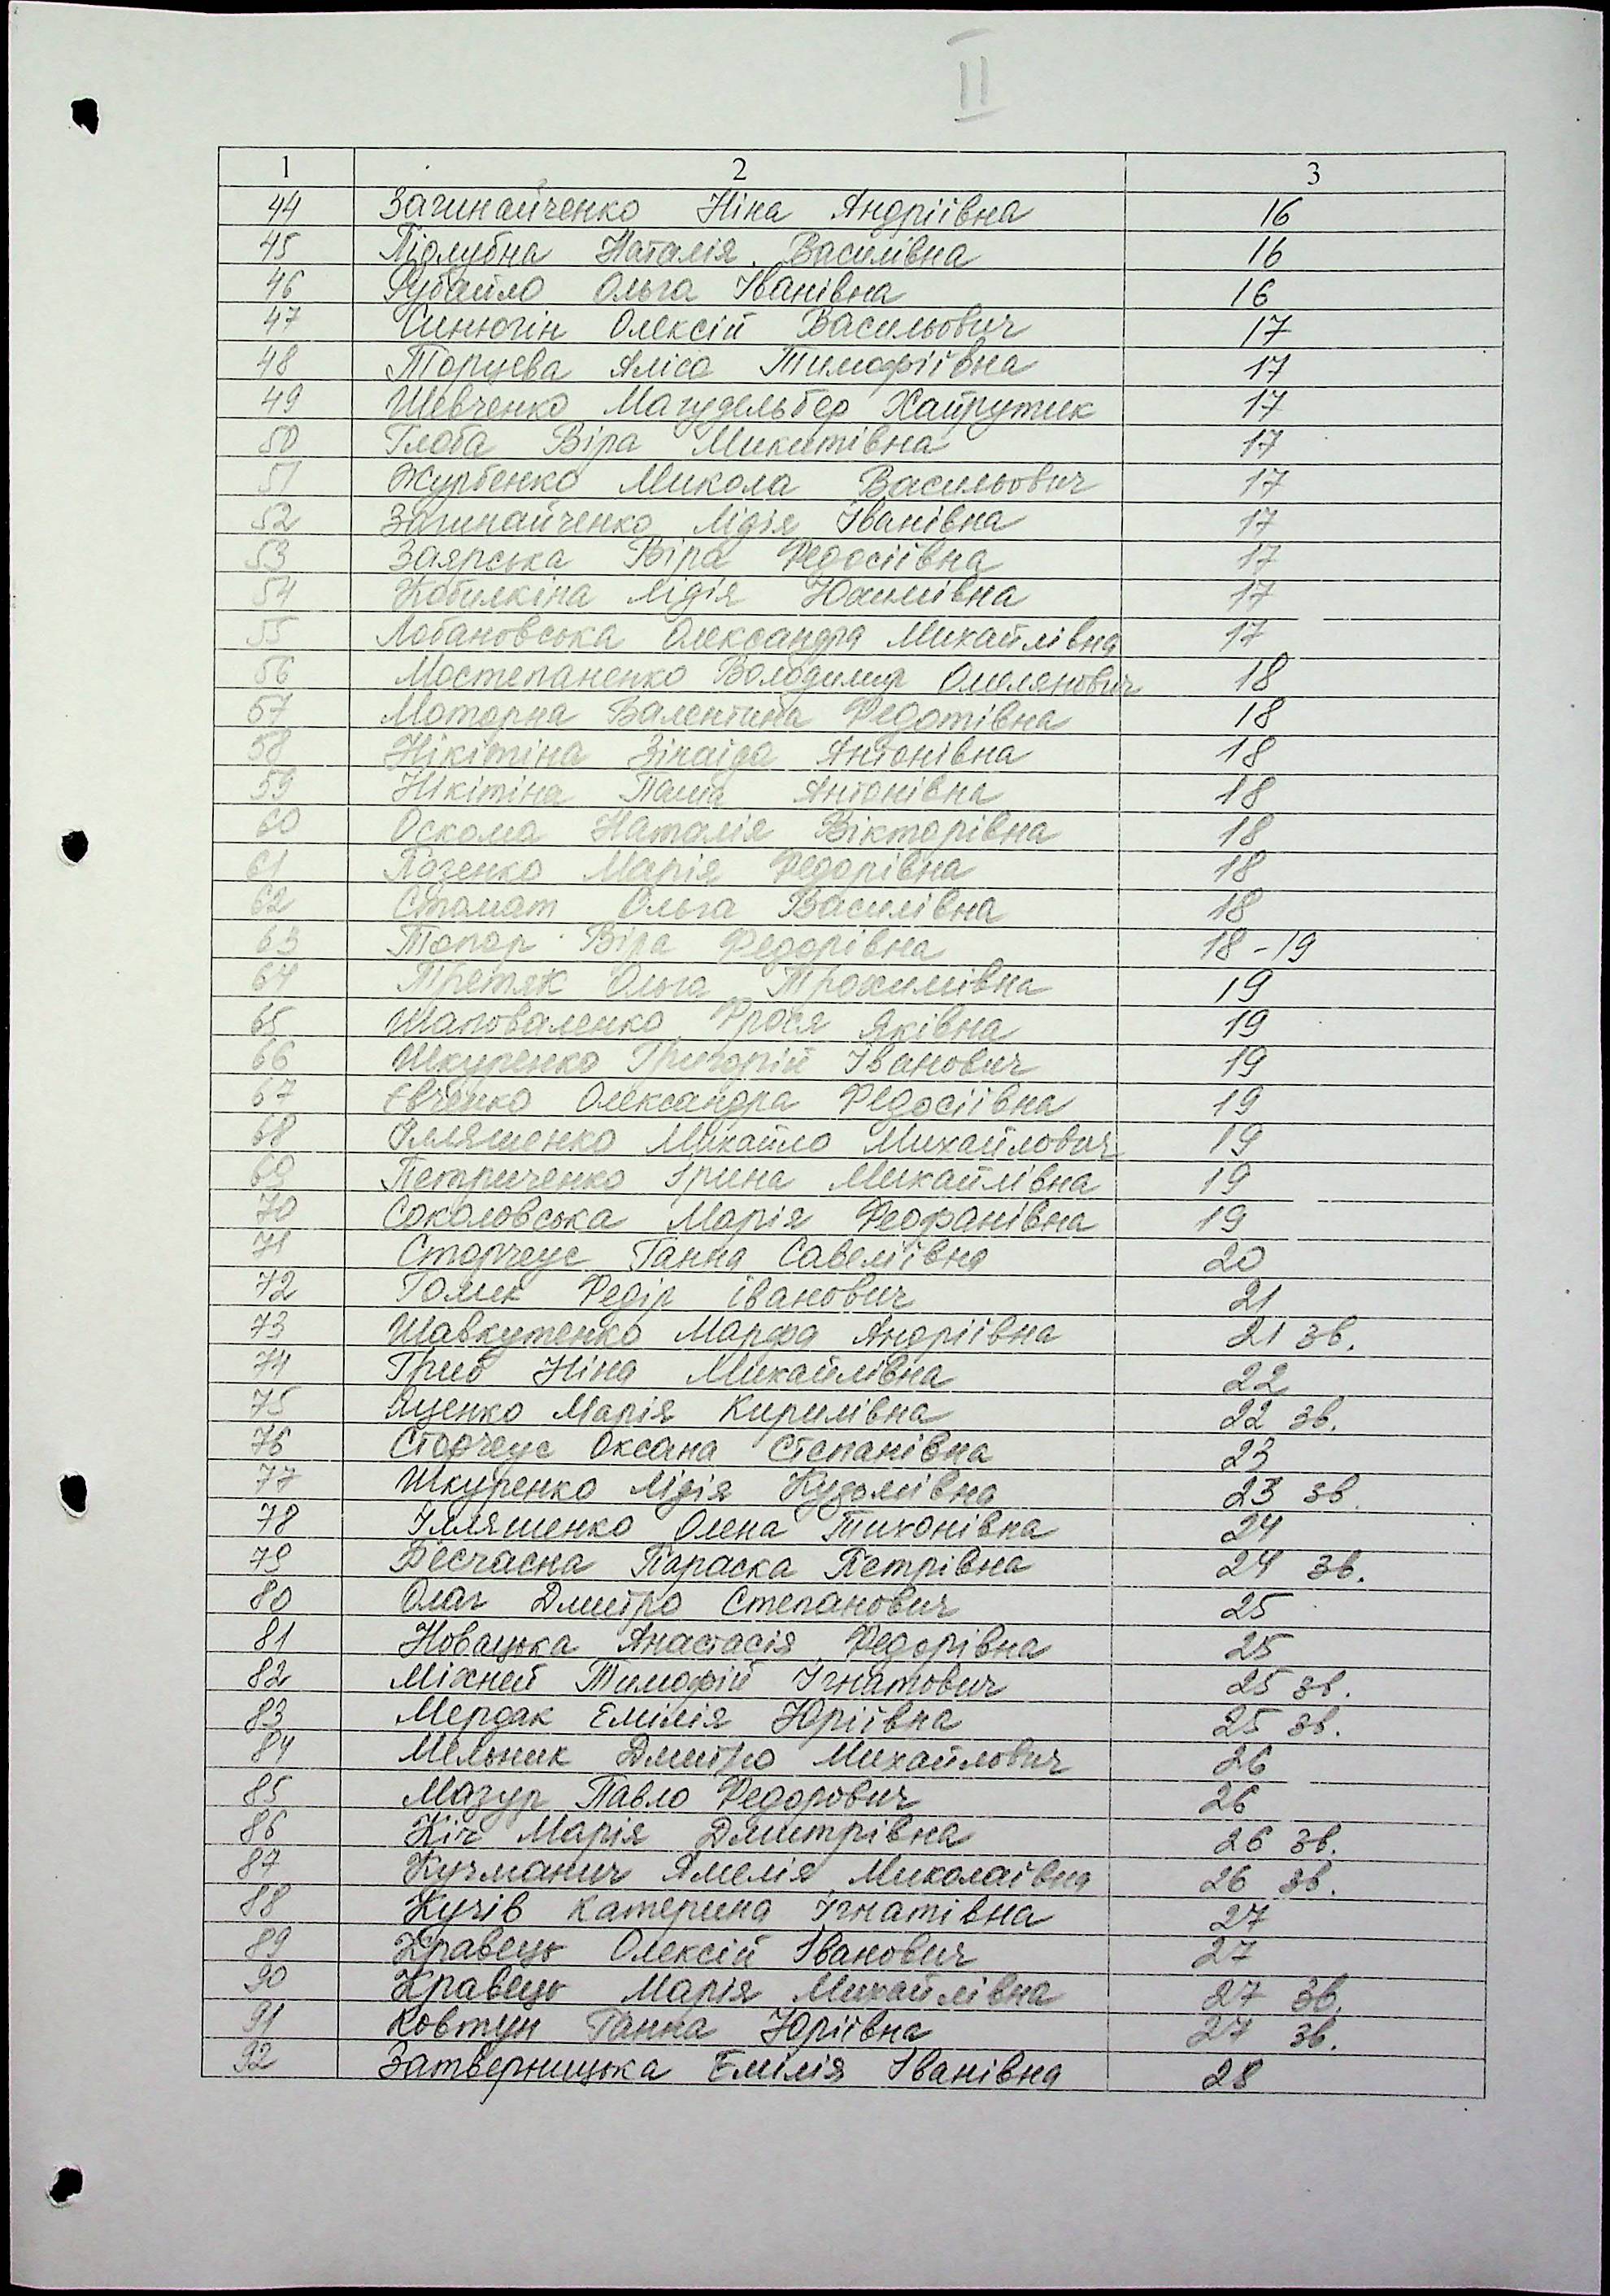 II
1 2 3
44 Загинайченко Ніна Андріївна 16
45 Підлубна Наталія Василівна 16
46 Рубайло Ольга Іванівна 16
47 Синюгін Олексій Васильович 17
48 Торцева Аліса Тимофіївна 17
49 Шевченко Магудельбер Хайрутик 17
50 Глоба Віра Микитівна 17
51 Журбенко Микола Васильович 17
52 Загинайченко Лідія Іванівна 17
53 Заярська Віра Федосіївна 17
54 Кобилкіна Лідія Юхимівна 17
55 Лобановська Олександра Михайлівна 17
56 Мостепаненко Володимир Омелянович 18
57 Моторна Валентина Федотівна 18
58 Нікітіна Зінаїда Антонівна 18
59 Нікітіна Паша Антонівна 18
60 Оскома Наталія Вікторівна 18
61 Позенко Марія Федорівна 18
62 Стамат Ольга Василівна 18
63 Топор Віра Федорівна 18-19
64 Третяк Ольга Трохимівна 19
65 Шаповаленко Фрося Яківна 19
66 Шкуренко Григорій Іванович 19
67 Євченко Олександра Федосіївна 19
68 Ілляшенко Михайло Михайлович 19
69 Петриченко Ірина Михайлівна 19
70 Соколовська Марія Феофанівна 19
71 Сторчеус Ганна Савеліївна 20
72 Гомик Федір Іванович 21
73 Шавкутенко Марфа Андріївна 21 зв.
74 Гриб Ніна Михайлівна 22
75 Яценко Марія Кирилівна 22 зв.
76 Сторчеус Оксана Степанівна 23
77 Шкуренко Лідія Кузьмівна 23 зв.
78 Ілляшенко Олена Тихонівна 24
79 Бесчасна Параска Петрівна 24 зв.
80 Олаг Дмитро Степанович 25
81 Новацька Анастасія Федорівна 25
82 Міхней Тимофій Ігнатович 25 зв.
83 Мердак Емілія Юріївна 25 зв.
84 Мельник Дмитро Михайлович 26
85 Мазур Павло Федорович 26
86 Кіч Марія Дмитрівна 26 зв.
87 Кучманич Амелія Миколаївна 26 зв.
88 Кучів Катерина Ігнатівна 27
89 Кравець Олексій Іванович 27
90 Кравець Марія Михайлівна 27 зв.
91 Ковтун Ганна Юріївна 27 зв.
92 Затверницька Емілія Іванівна 28